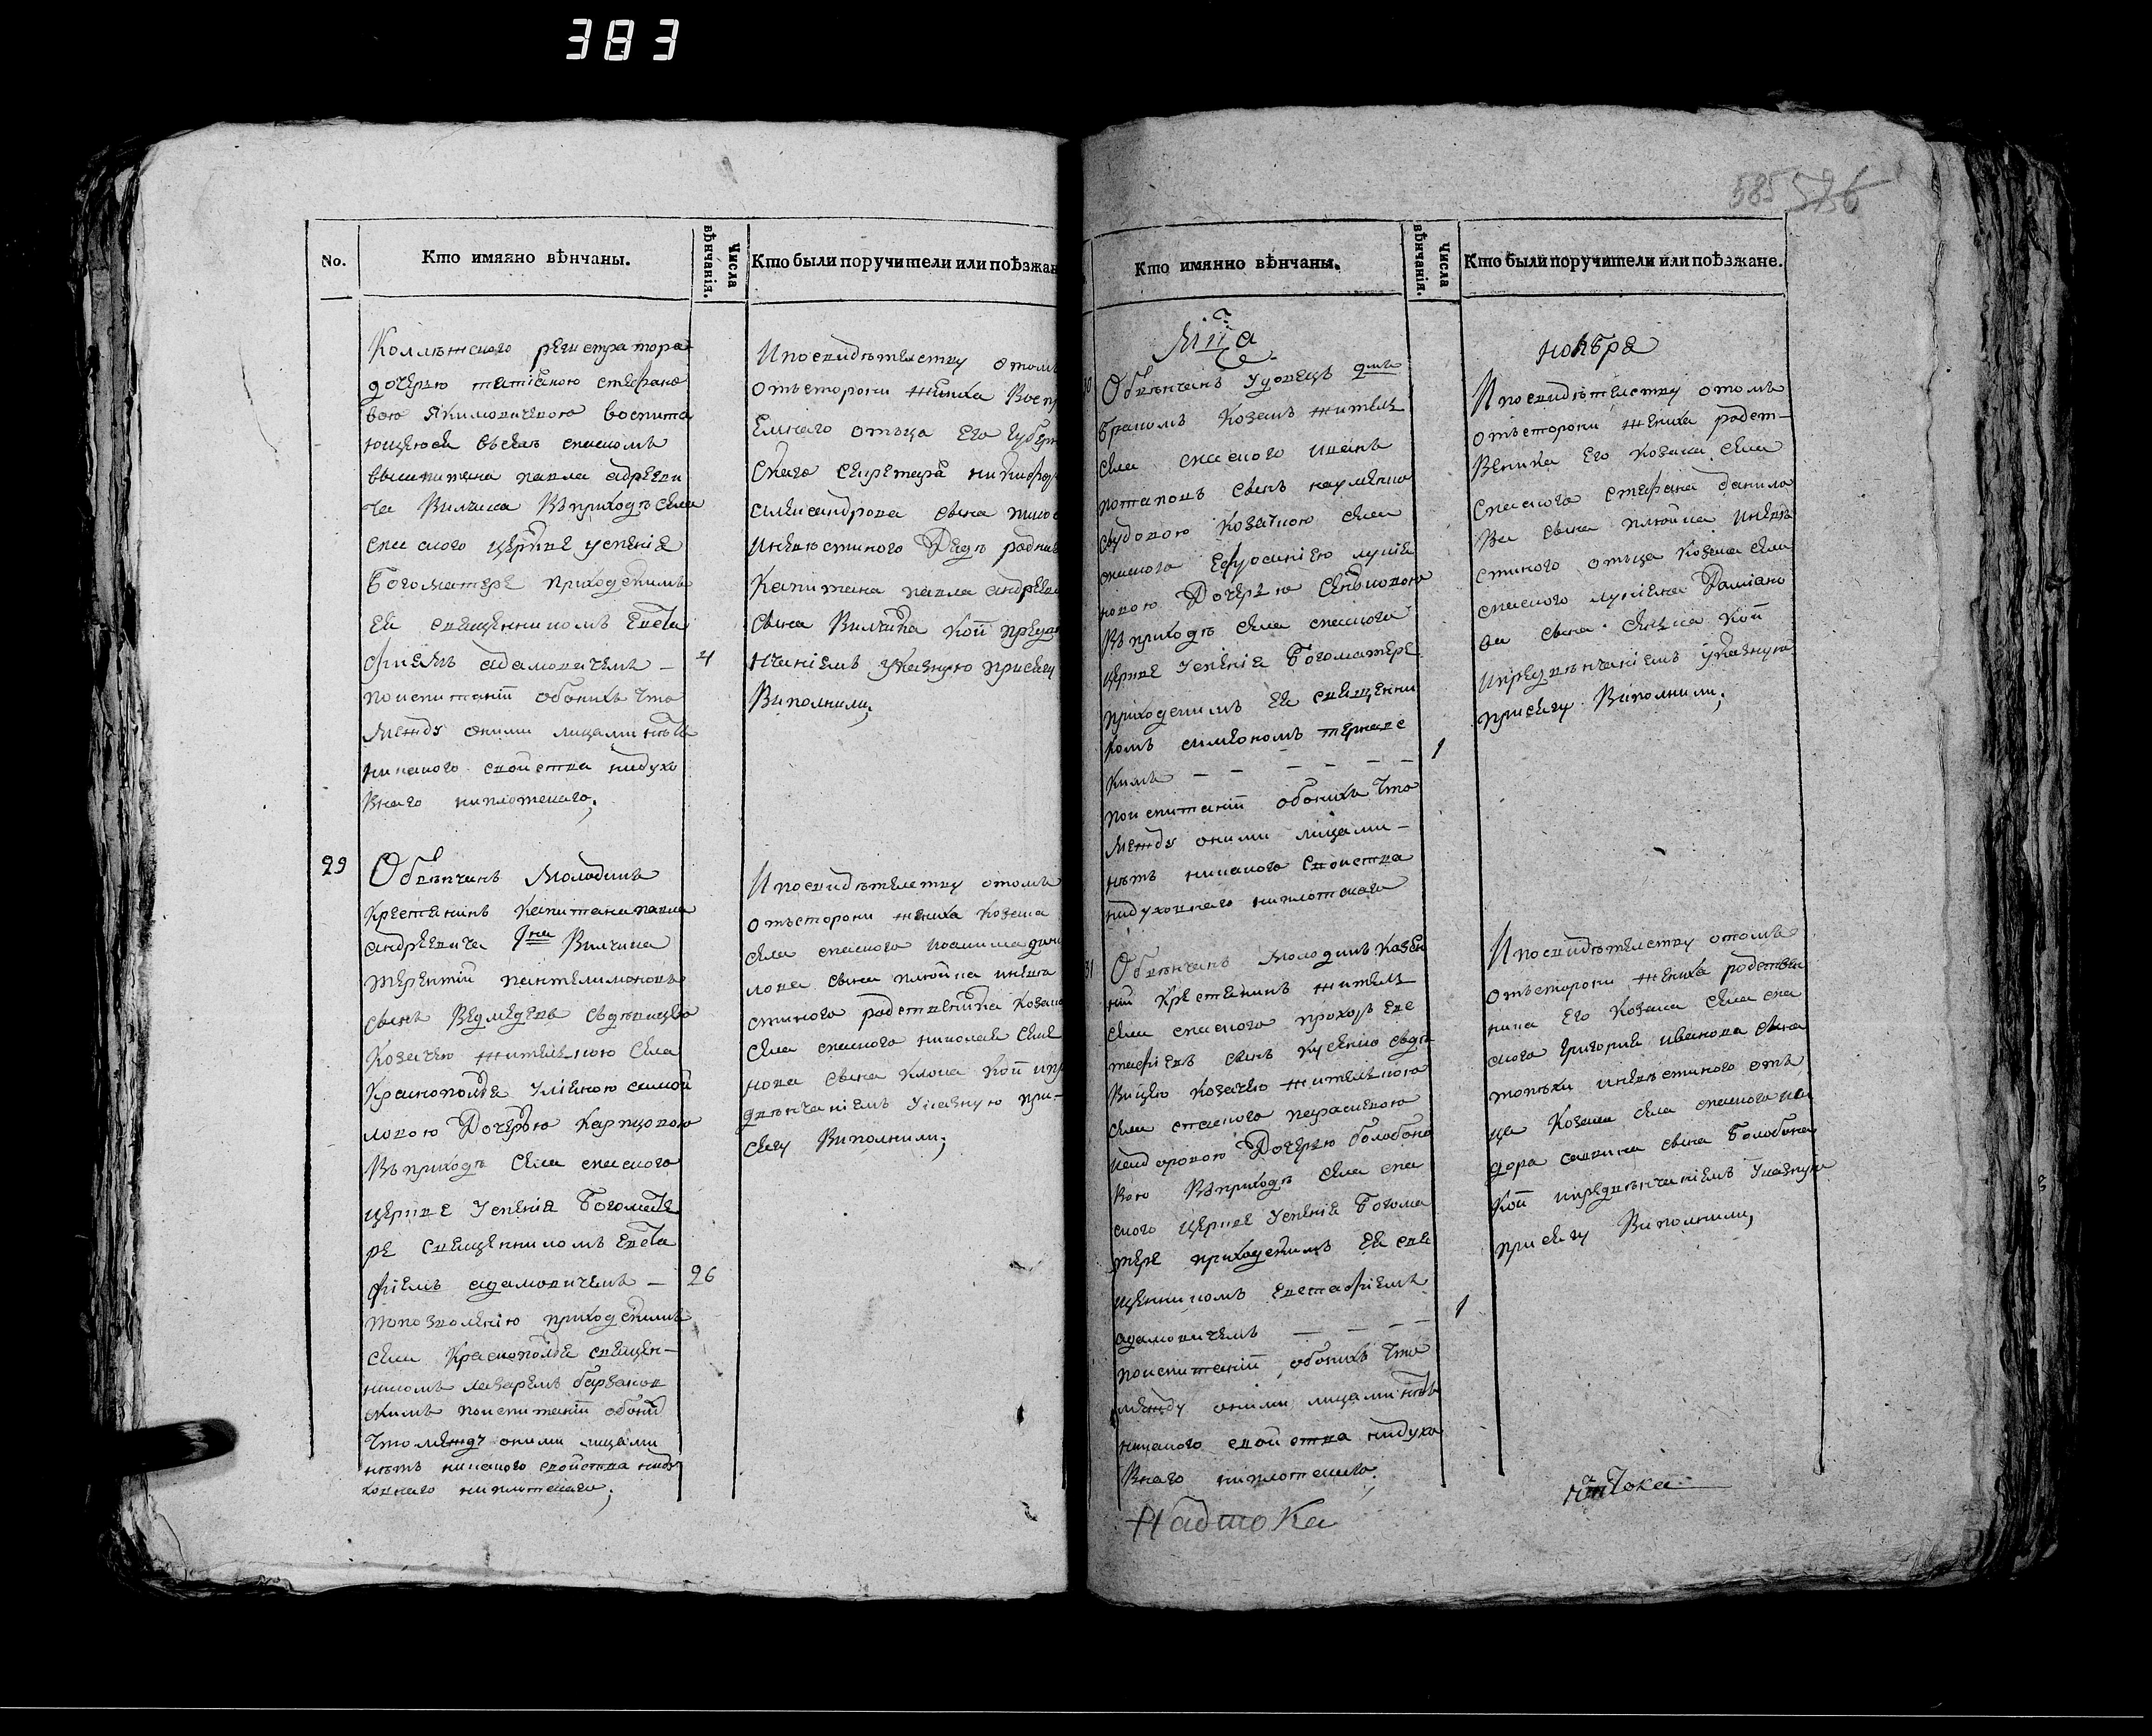 383
585 586
No.
Кто имянно вѣнчаны.
Числа вѣнчанія.
Кто были поручители или поѣзжан
Колѣжского регистратора
дочерью татіаною стефано
вою Якимовичевою воспита
ющеюся въселѣ спаскомъ
вкапитана павла андрееви
ча Вилчика Въприходѣ села
спаского церкве успенія
Богоматере приходскимъ
ея священникомъ Евста
фіемъ адамовичемъ — 4
поиспитаніи обоихъ что
между оними лицами нѣтъ
никакого свойства нидухо
Внаго ниплотскаго;
И посвидѣтелству отомъ
отъсторони жениха Воспр
Емнаго отъца его губерн
Скаго секретара никифор
александрова сына
Иневѣстиного Дядѣ родни
Капитана павла андреев
Сына Вилчика кои предвѣ
нчаніемъ указную присягу
Виполнили;
29
Обвѣнчанъ Молодикъ
крестянинъ капитана павла
андреевича 1на Вилчика
терентій пантелимоновъ
сынъ Ведмедевъ съдѣвицею
Козачею жителкою села
Краснополя Уліяною самой
ловою Дочерью Карпцовою
Въприходѣ села спаского
церкве Успенія Богомате
ре священникомъ Евста
фіемъ адамовичемъ — 26
попозволенію приходскимъ
села Краснополя священ-
никомъ лазаремъ барзаков
скимъ поиспитаніи обоихъ
Что между оними лицами
нѣтъ никакого свойства ниду
ховнаго ниплотскаго;
И посвидѣтелству отомъ
отъсторони жениха козака
села спаского иоакима дани
лова сына плюйка иневѣ
стиного родственника козака
села спаского николая симе
нова сына клока кои пре
двѣнчаніемъ указную при-
сягу Виполнили;
Кто имянно вѣнчаны.
Числа вѣнчанія.
Кто были поручители или поѣзжане.
Мца
ноября
30
Обвѣнчанъ Удовецъ 2мъ
бракомъ Козакъ жителъ
села спаского иванъ
потаповъ сынъ науменко
свдовою козачкою села
спаского Ефросиніею лукія
новою Дочерью Сенковою
Въприходѣ села спаского
церкве Успенія Богоматере
приходскимъ ея священни
комъ симеономъ тернавс
кимъ — — — — — — 1
поиспитаніи обоихъ что
между оними лицами-
нѣтъ никакого свойства
нидуховнаго ниплотскаго
И посвидѣтелству отомъ
отъсторони жениха родст-
Веника его козака села
спаского стефана данило
Ва сына плюйка иневѣ
стиного отъца козака села
спаского лукіяна Даміано
ва сына сенка кои
ипредвѣнчаніемъ указную
присягу Виполнили;
31
Обвѣнчанъ молодикъ казен
ній Крестянинъ жителъ
села спаского прохоръ Евс
тафіевъ сынъ Кусенко съдѣ
Вицею козачею жителкою
села спаского параскевою
исидоровою Дочерью болобоно
вою Въприходѣ села спа
ского церкве Успенія Богома
тере приходскимъ ея свя
щенникомъ Евстафіемъ
адамовичемъ — — — — 1
поиспитаніи обоихъ что
между оними лицами нѣтъ
никакого свойства нидухо
Внаго ниплотскаго;
И посвидѣтелству отомъ
отъсторони жениха родствен
ника его козака села спа
ского григорія иванова сына
иневѣстиного отъ
ца Козака села спаского иси
дора савина сына Болобона
кои ипредвѣнчаніемъ указную
присягу Виполнили;
Надтока